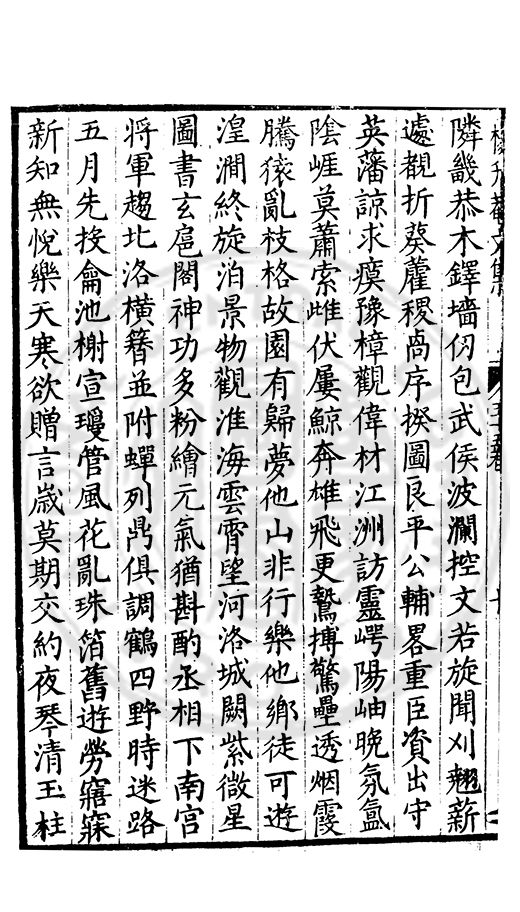 隣畿恭木鐸墻仭包武侯波瀾控文若旋聞刈翹薪
遽覩折葵藿稷卨序揆圖良平公輔畧重臣資出守
英藩諒求瘼豫樟觀偉材江洲訪靈崿陽岫晚氛氳
陰崕莫蕭索雌伏屢鯨奔雄飛更鷙搏驚壘透烟霞
騰猿亂枝格故園有歸夢他山非行樂他鄉徒可遊
湟澗終旋泊景物觀淮海雲霄望河洛城闕紫微星
圖書玄扈閣神功多粉繪元氣猶斟酌丞相下南宮
將軍趨北洛橫簪並附蟬列鼎俱調鶴四野時迷路
五月先投龠池榭宣瓊管風花亂珠箔舊遊勞寤寐
新知無悅樂天寒欲贈言歲莫期交約夜琴清玉柱